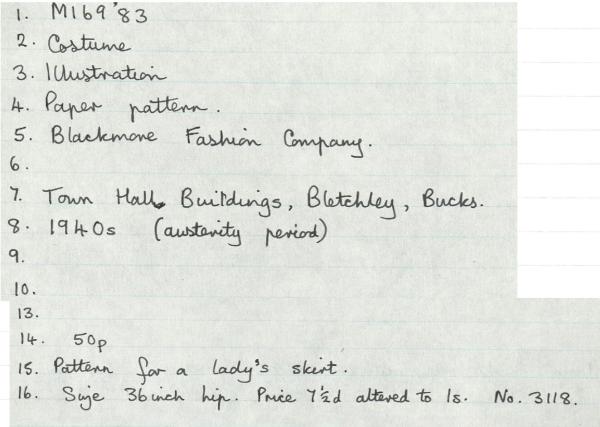 1. M169'83
2. Costume
3. Illustration
4. Paper pattern.
5. Blackmore Fashion Company.
6.
7. Town Hall Buildings, Bletchley, Bucks.
8. 1940s (austerity period)
9.
10.
13.
14. 50p
15. Pattern for a lady's skirt.
16. Size 36 inch hip. Price 7½d altered to 1s. No. 3118.